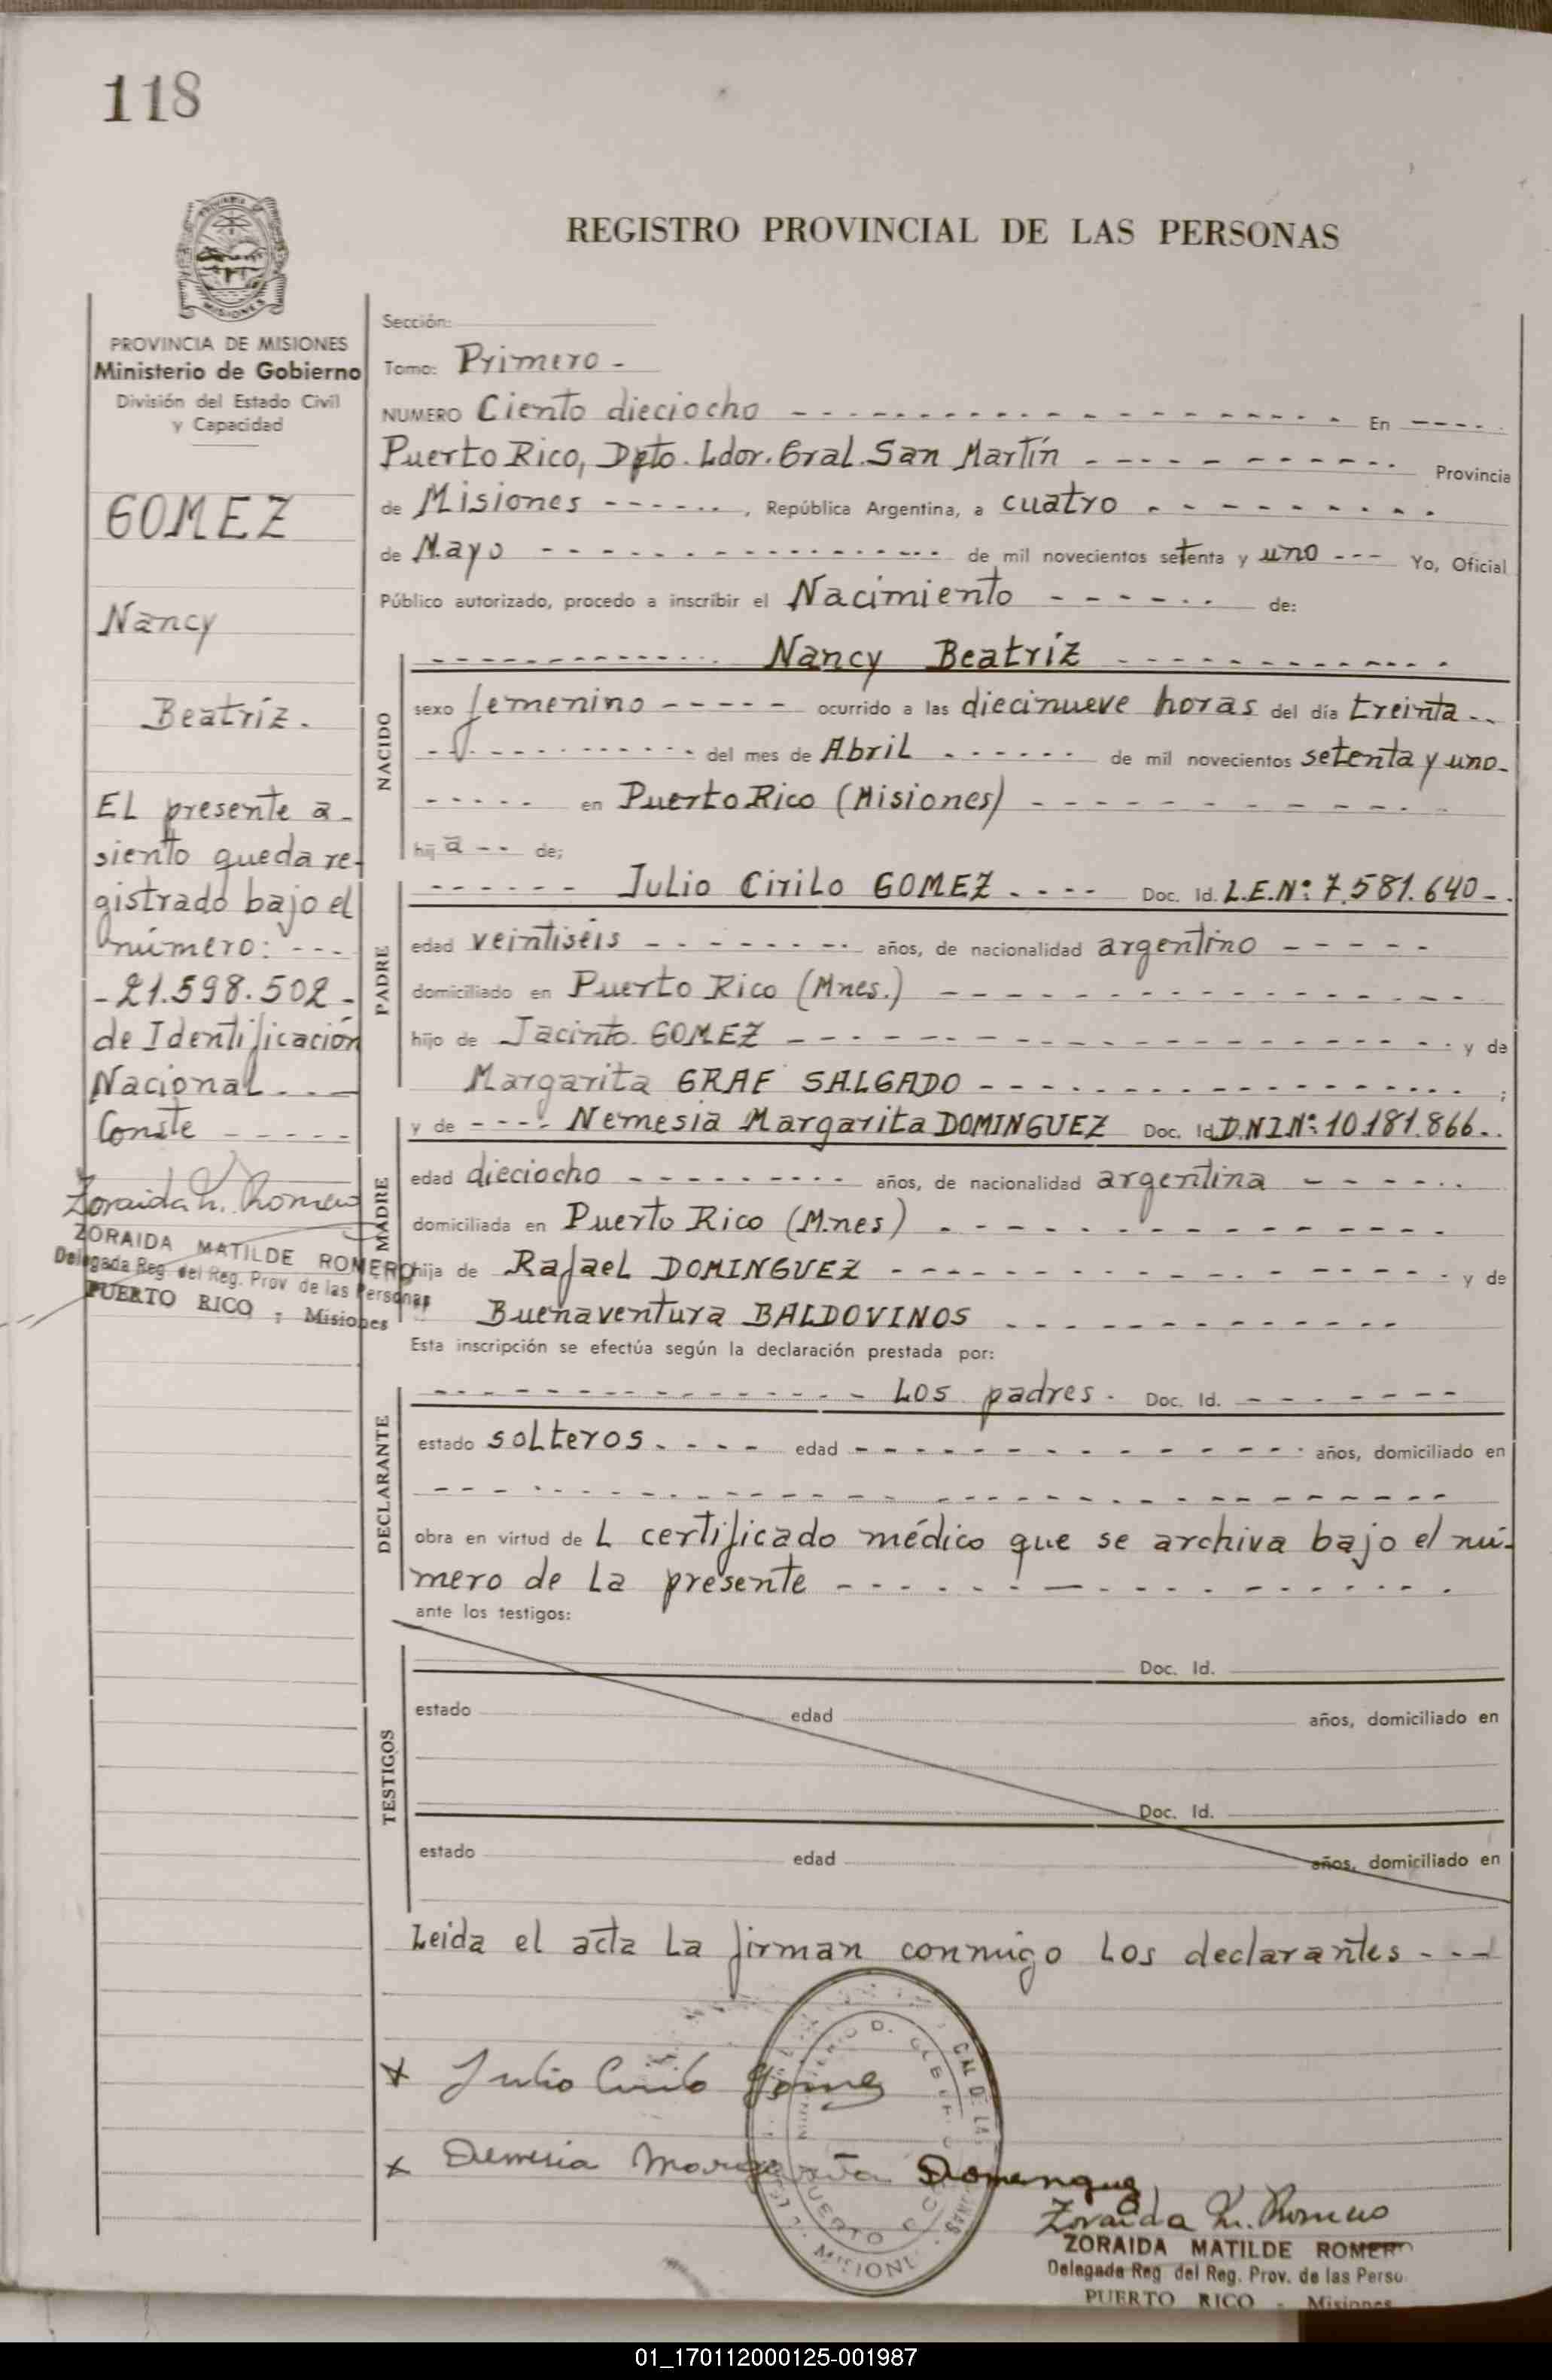 118
REGISTRO PROVINCIAL DE LAS PERSONAS
PROVINCIA DE MISIONES
Ministerio de Gobierno
División del Estado Civil
y Capacidad
GOMEZ
Nancy
Beatríz.
EL presente a-
siento queda re-
gistrado bajo el
número: ---
- 21.598.502 -
de Identificación
Nacional ---
Conste -----
Zoraida M. Romero
ZORAIDA MATILDE ROMERO
Delegada Reg. del Reg. Prov de las Personas
PUERTO RICO - Misiones
Sección:
Tomo: Primero -
NUMERO Ciento dieciocho - - - - En ----
Puerto Rico, Dpto. Ldor. Gral. San Martín - - - - Provincia
de Misiones ------, República Argentina, a cuatro - - - -
de Mayo - - - - de mil novecientos setenta y uno --- Yo, Oficial
Público autorizado, procedo a inscribir el Nacimiento - - - - de:
NACIDO
- - - - Nancy Beatríz - - - -
sexo femenino ----- ocurrido a las diecinueve horas del día treinta --
- - - - del mes de Abril - - - - de mil novecientos setenta y uno-
----- en Puerto Rico (Misiones) - - - -
hij a -- de;
PADRE
------ Julio Cirilo GOMEZ ---- Doc. Id. L.E.Nº: 7.581.640 -.
edad veintiséis - - - - años, de nacionalidad argentino -----
domiciliado en Puerto Rico (Mnes.) - - - -
hijo de Jacinto GOMEZ - - - - y de
Margarita GRAF SALGADO - - - - ;
MADRE
y de ---- Nemesia Margarita DOMINGUEZ Doc. Id. D.N.I.Nº: 10.181.866..
edad dieciocho - - - - años, de nacionalidad argentina - - - -
domiciliada en Puerto Rico (M.nes) - - - -
hija de Rafael DOMINGUEZ - - - - y de
Buenaventura BALDOVINOS - - - -
Esta inscripción se efectúa según la declaración prestada por:
DECLARANTE
- - - - Los padres. Doc. Id. - - - -
estado solteros. ---- edad - - - - años, domiciliado en
- - - -
obra en virtud de L certificado médico que se archiva bajo el nú-
mero de la presente - - - -
ante los testigos:
TESTIGOS
Doc. Id.
estado edad años, domiciliado en
Doc. Id.
estado edad años, domiciliado en
Leida el acta la firman conmigo los declarantes ---
x Julio Cirilo Gomez
x Nemesia Margarita Domenguez
PUERTO RICO
MISIONES
Zoraida M. Romero
ZORAIDA MATILDE ROMERO
Delegada Reg del Reg. Prov. de las Perso
PUERTO RICO - Misiones
01_170112000125-001987